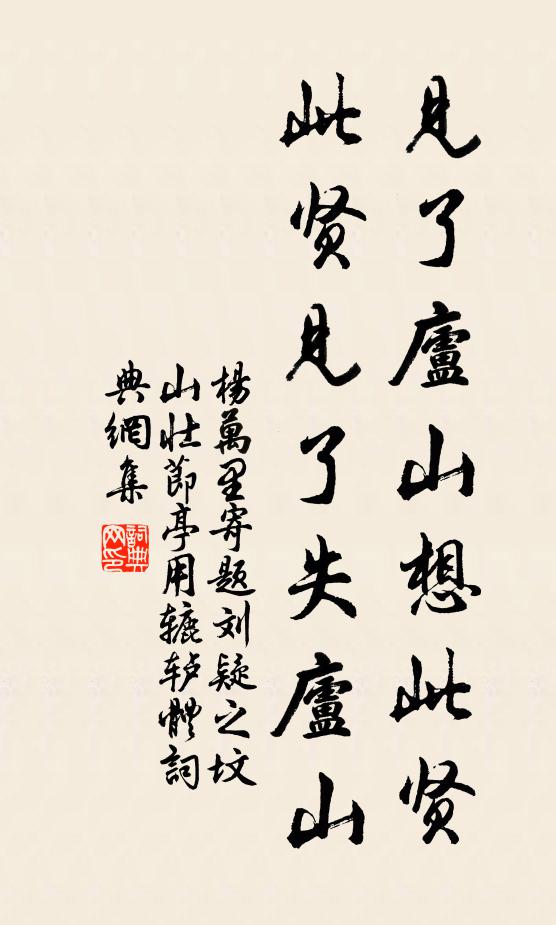 見了廬山想此贤
此贤見了失廬山
楊萬里寄題刘疑之坟
山壮節亭用辘轳體詞
典網集
詞典
网印